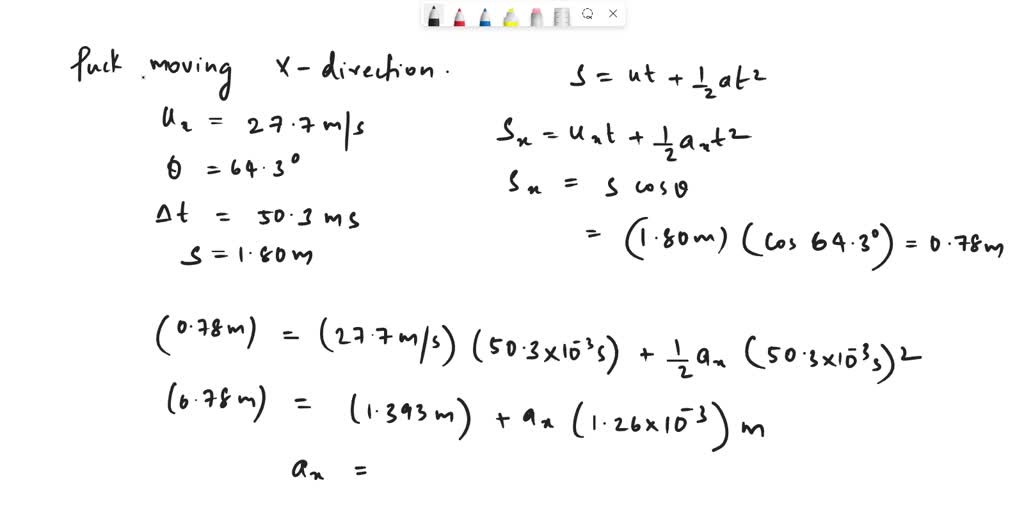 Puck moving X-direction.
u_x = 27.7 m/s
θ = 64.3°
Δt = 50.3 ms
s = 1.80m
s = ut + 1/2 at²
s_x = u_x t + 1/2 a_x t²
s_x = s cosθ
= (1.80m) (cos 64.3°) = 0.78m
(0.78m) = (27.7 m/s) (50.3×10⁻³s) + 1/2 a_x (50.3×10⁻³s)²
(0.78m) = (1.393m) + a_x (1.26×10⁻³) m
a_x =